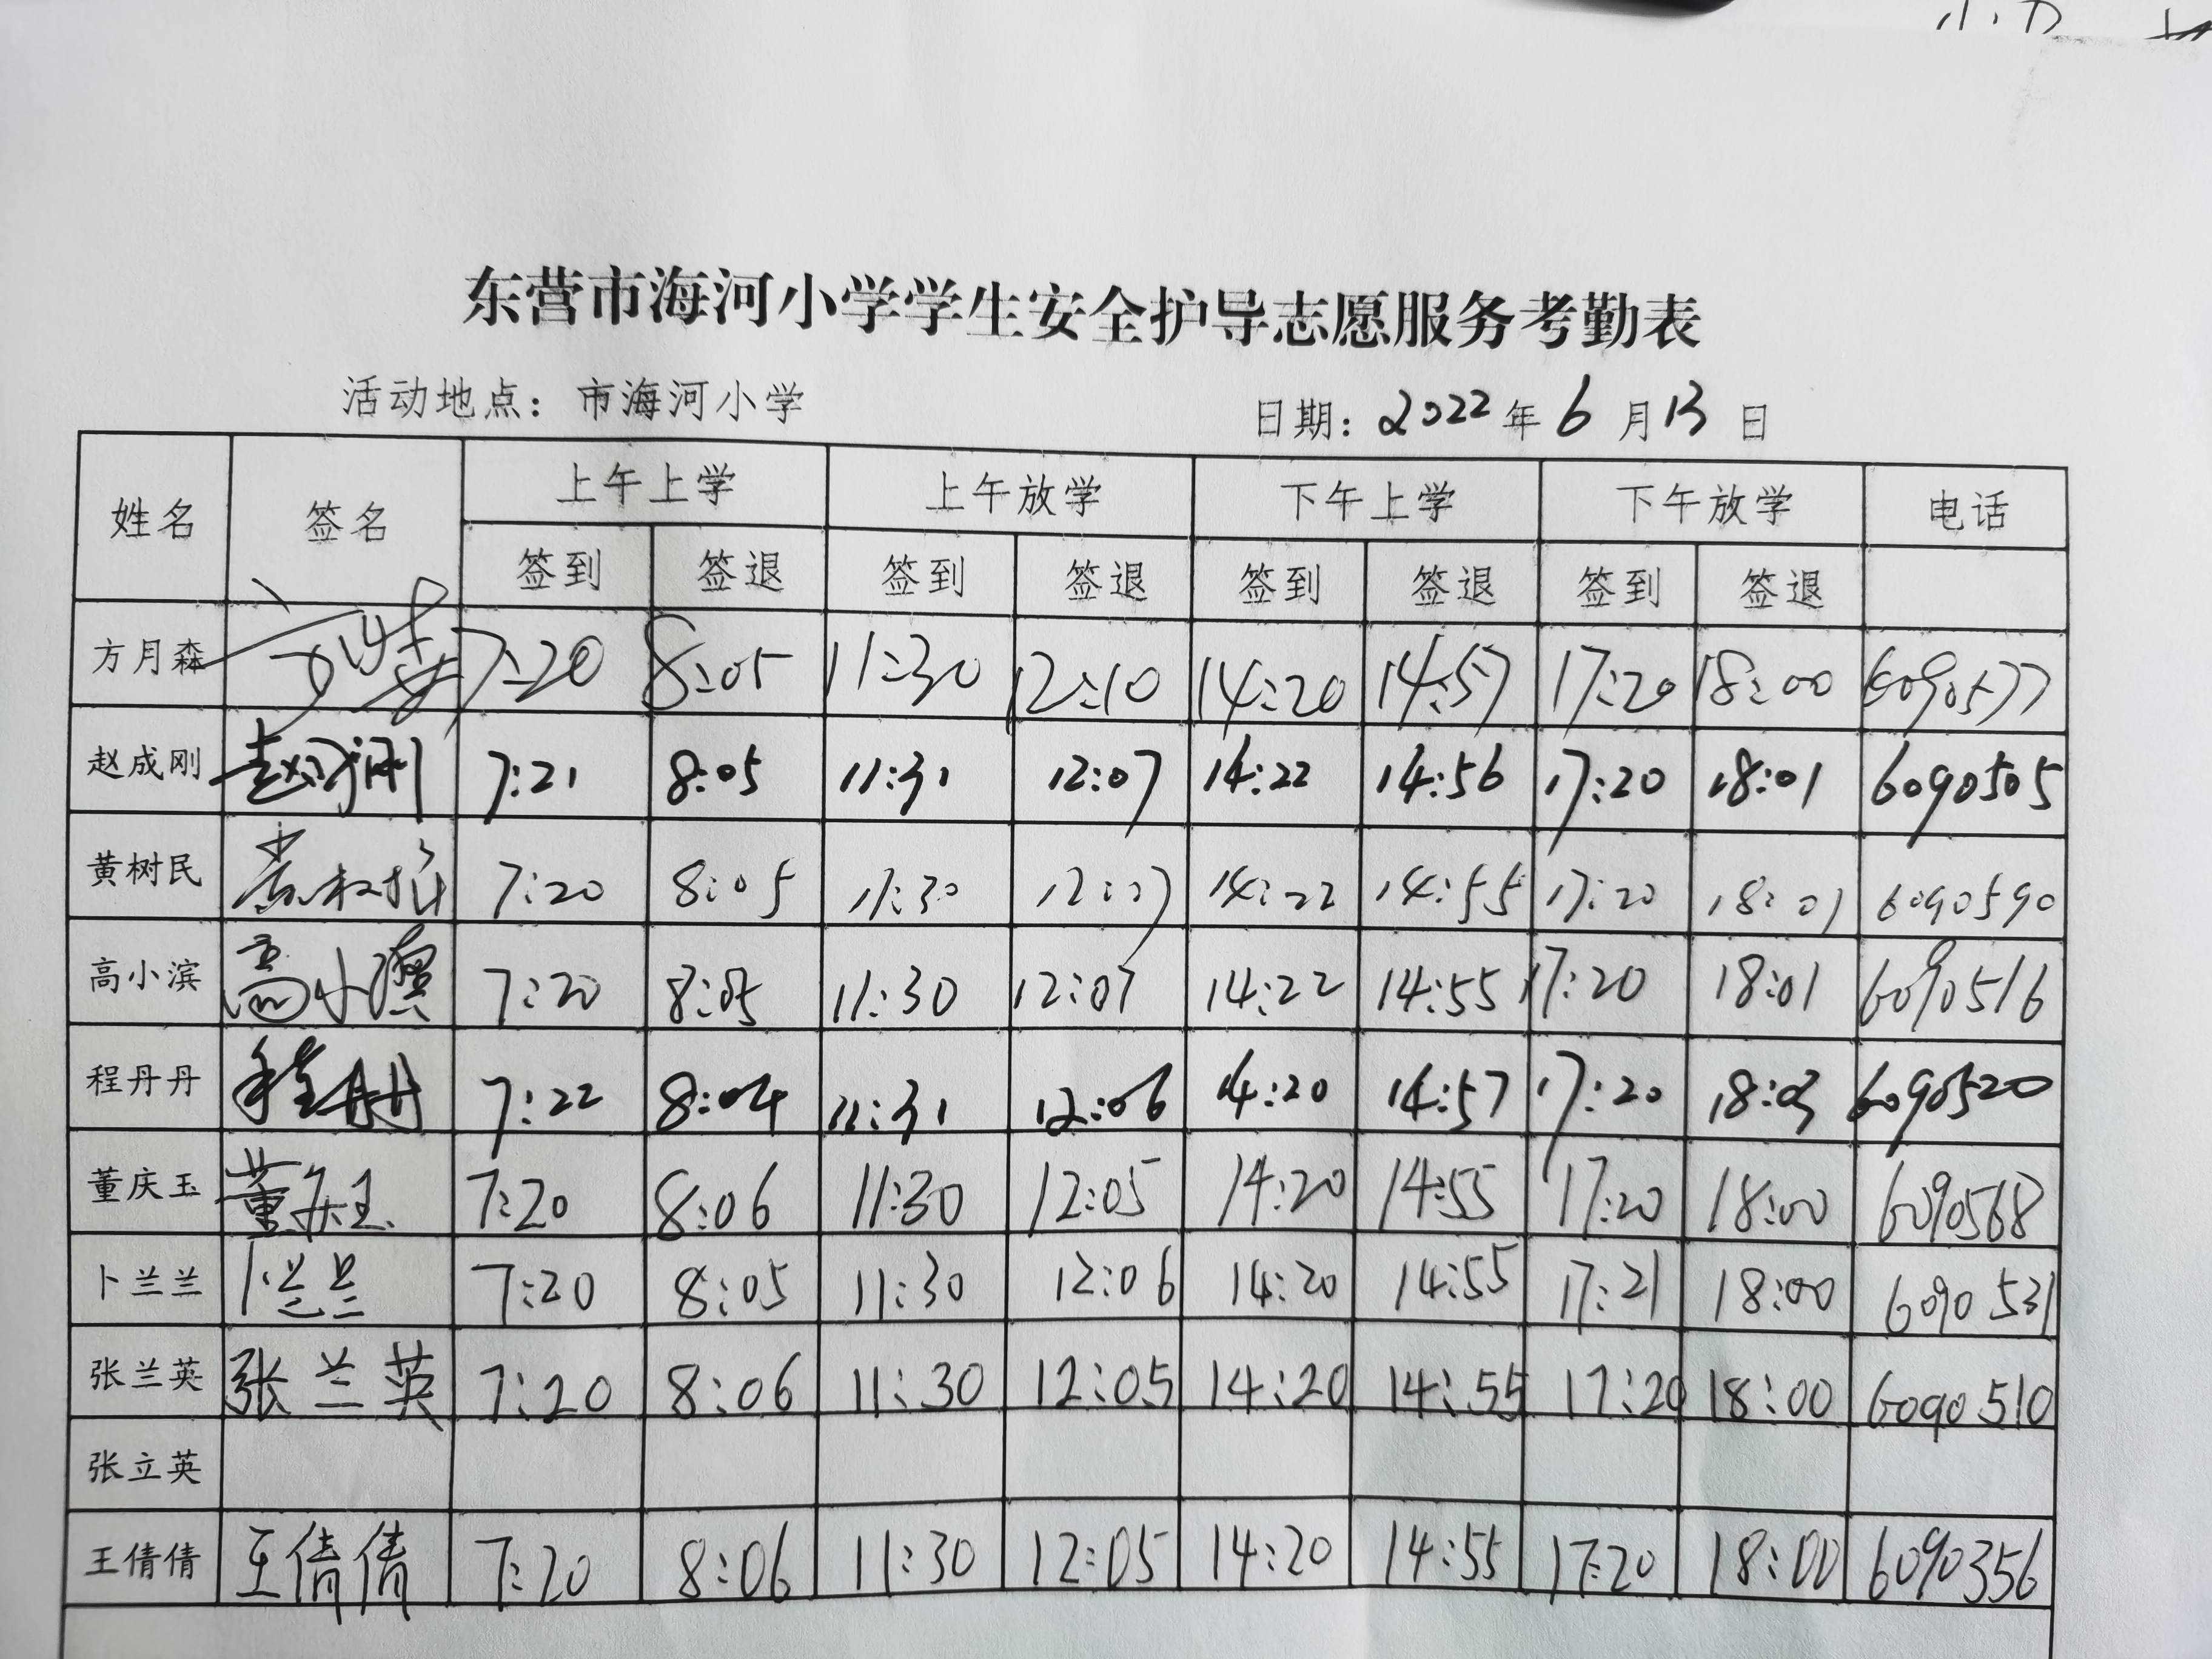 东营市海河小学学生安全护导志愿服务考勤表
活动地点：市海河小学 日期：2022年6月13日
姓名 签名 上午上学 上午放学 下午上学 下午放学 电话
签到 签退 签到 签退 签到 签退 签到 签退
方月森 7:20 8:05 11:30 12:10 14:20 14:57 17:20 18:00 6090577
赵成刚 赵成刚 7:21 8:05 11:31 12:07 14:22 14:56 17:20 18:01 6090505
黄树民 7:20 8:05 11:30 12:07 14:22 14:55 17:20 18:01 6090590
高小滨 高小滨 7:20 8:05 11:30 12:07 14:22 14:55 17:20 18:01 6090516
程丹丹 程丹丹 7:22 8:04 11:31 12:06 14:20 14:57 17:20 18:03 6090520
董庆玉 董庆玉 7:20 8:06 11:30 12:05 14:20 14:55 17:20 18:00 6090568
卜兰兰 卜兰兰 7:20 8:05 11:30 12:06 14:20 14:55 17:21 18:00 6090531
张兰英 张兰英 7:20 8:06 11:30 12:05 14:20 14:55 17:20 18:00 6090510
张立英
王倩倩 王倩倩 7:20 8:06 11:30 12:05 14:20 14:55 17:20 18:00 6090356